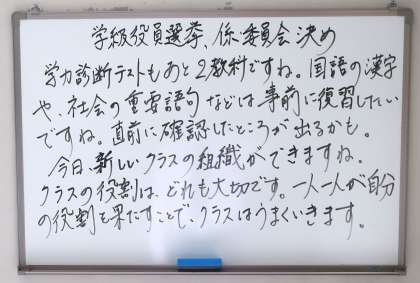 学級役員選挙、係・委員会決め
学力診断テストもあと2教科ですね。国語の漢字
や、社会の重要語句などは事前に復習したい
ですね。直前に確認したところが出るかも。
今日、新しいクラスの組織ができますね。
クラスの役割は、どれも大切です。一人一人が自分
の役割を果たすことで、クラスはうまくいきます。